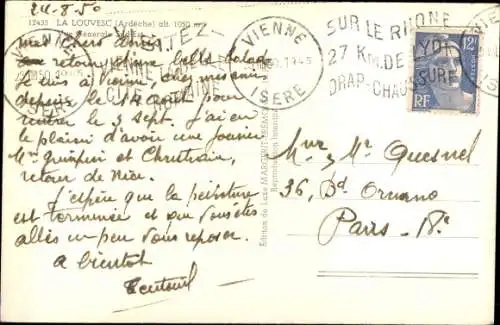 24.8.50
12435 LA LOUVESC (Ardèche) alt. 1050 m
Vue Générale
VIENNE
ISERE
1945
VISITEZ
VIENNE
CITÉ ROMAINE
SUR LE RHONE
27 KM. DE LYON
DRAP-CHAUSSURE
12F
RF
mes chers amis
retour d'une belle balade
je suis à Vienne, chez mes amis
depuis le 14 août pour
rentrer le 3 sept. j'ai eu
le plaisir d'avoir une journée
Mr et Christian,
retour de Nice.
J'espère que la peinture
est terminée et que vous êtes
allés un peu vous reposer.
a bientot
Edition de Luxe MARGERIT-BRÉMOND
Reproduction interdite
Mr & Mme Quesnel
36, Bd. Ornano
Paris - 18e